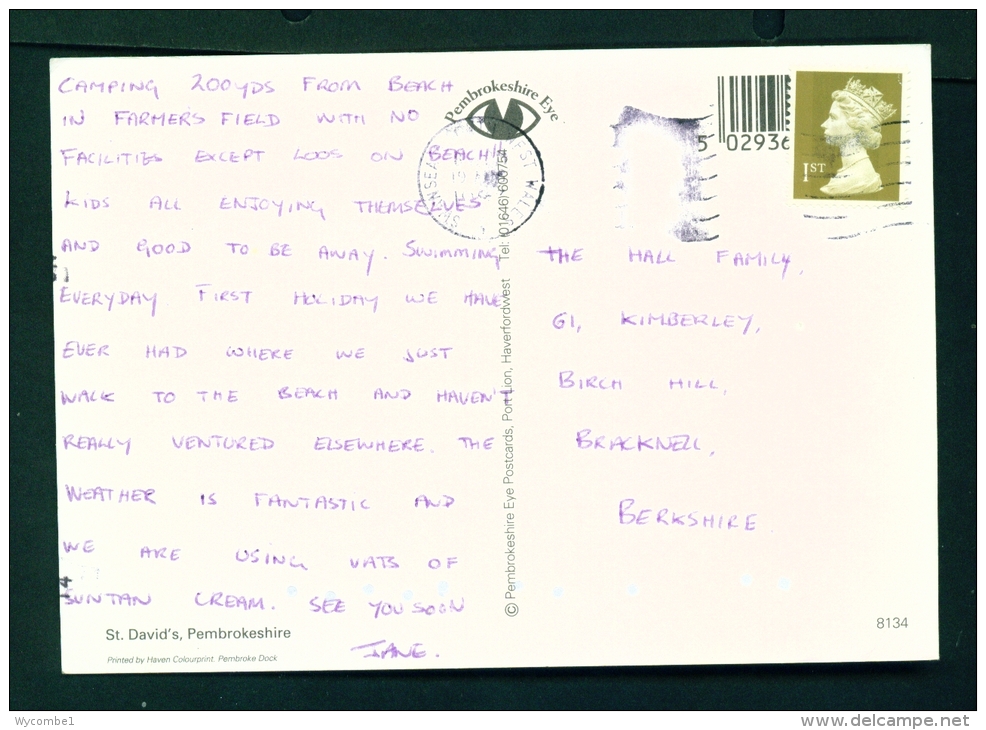 CAMPING 200YDS FROM BEACH
IN FARMER'S FIELD WITH NO
FACILITIES EXCEPT LOOS ON BEACH!!
KIDS ALL ENJOYING THEMSELVES
AND GOOD TO BE AWAY. SWIMMING
EVERYDAY FIRST HOLIDAY WE HAVE
EVER HAD WHERE WE JUST
WALK TO THE BEACH AND HAVEN'T
REALLY VENTURED ELSEWHERE. THE
WEATHER IS FANTASTIC AND
WE ARE USING VATS OF
SUNTAN CREAM. SEE YOU SOON
JANE.
St. David's, Pembrokeshire
Printed by Haven Colourprint. Pembroke Dock
Pembrokeshire Eye
© Pembrokeshire Eye Postcards, Port Lion, Haverfordwest Tel: (01646) 600754
5 02936
1ST
THE HALL FAMILY,
61, KIMBERLEY,
BIRCH HILL,
BRACKNELL,
BERKSHIRE
8134
Wycombe1
www.delcampe.net